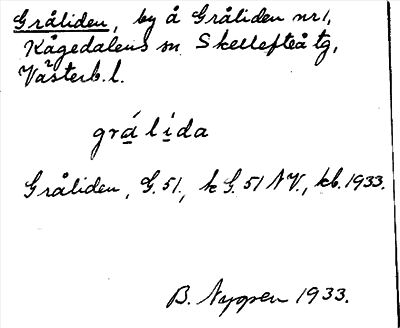 Gråliden, by å Gråliden nr 1,
Kågedalens sn. Skellefteå tg,
Västerb. l.
grá̱ li̱da
Gråliden, G. 51., k G. 51 NV., kb. 1933.
B. 1933.